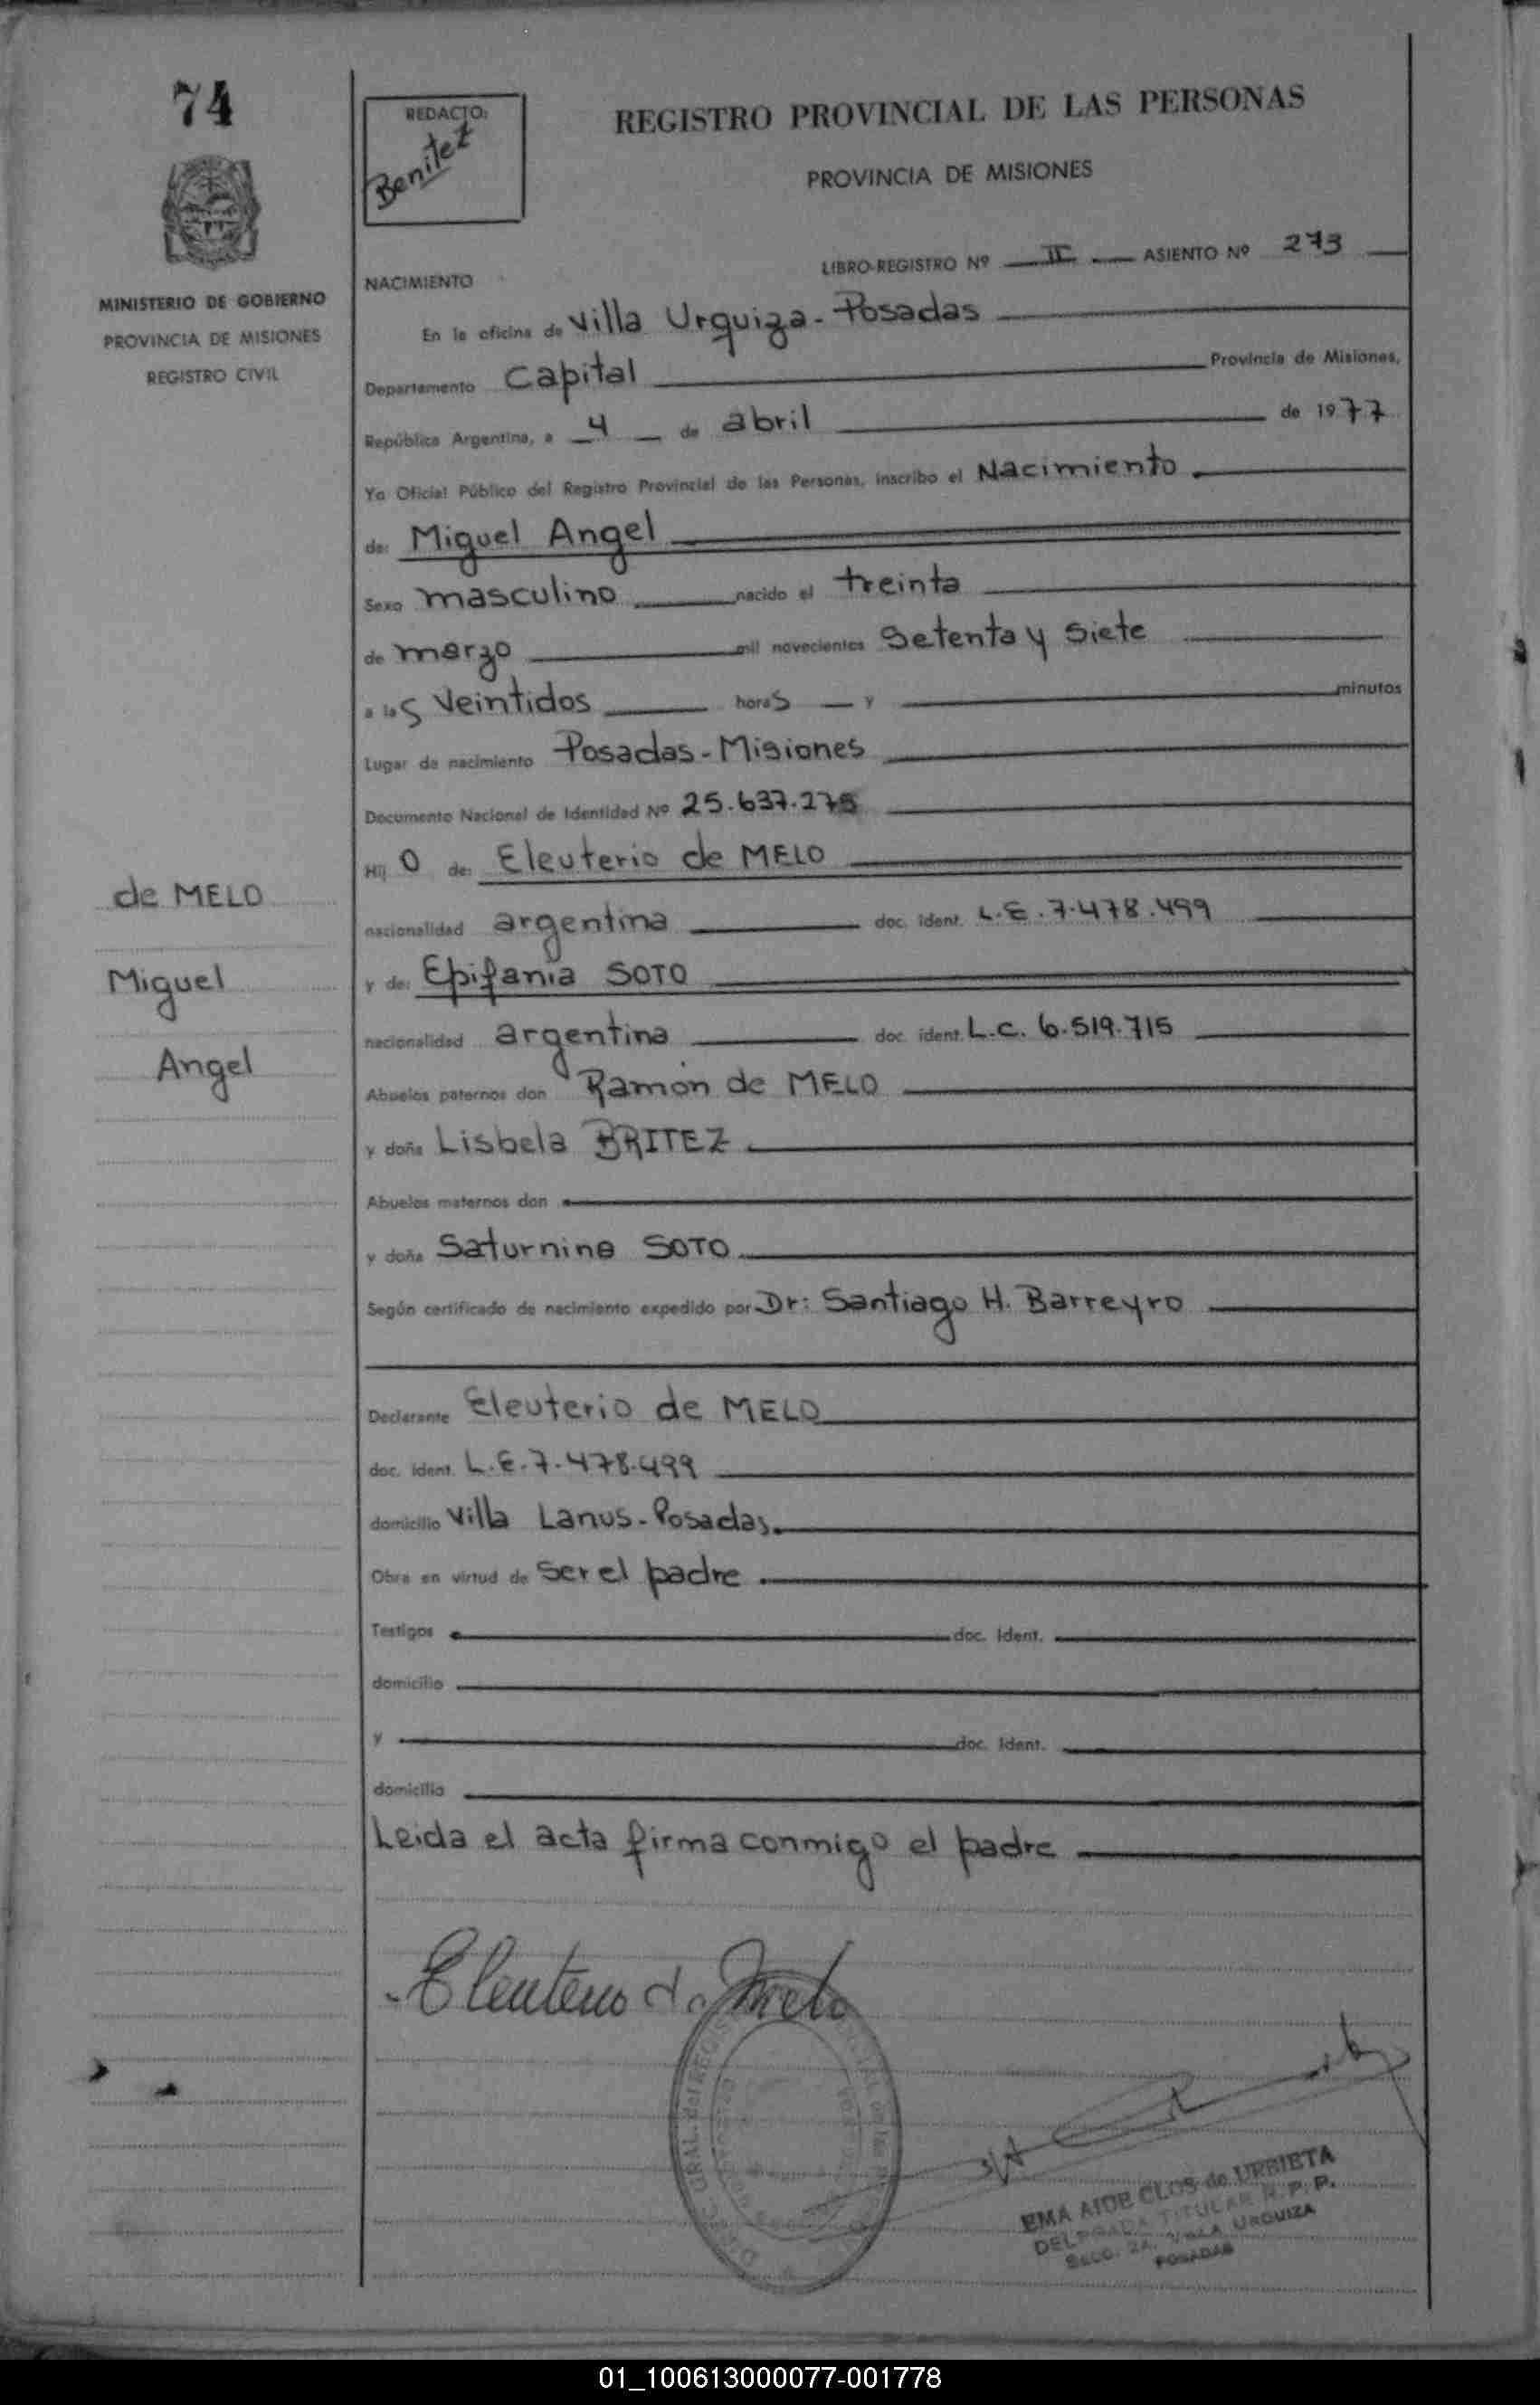 74
MINISTERIO DE GOBIERNO
PROVINCIA DE MISIONES
REGISTRO CIVIL
de MELO
Miguel
Angel
REDACTO:
Benitez
REGISTRO PROVINCIAL DE LAS PERSONAS
PROVINCIA DE MISIONES
LIBRO-REGISTRO Nº II ASIENTO Nº 273
NACIMIENTO
En la oficina de Villa Urquiza - Posadas
Departamento Capital Provincia de Misiones,
República Argentina, a 4 de abril de 1977
Yo Oficial Público del Registro Provincial de las Personas, inscribo el Nacimiento
de: Miguel Angel
Sexo masculino nacido el treinta
de marzo mil novecientos Setenta y Siete
a las Veintidos horas y minutos
Lugar de nacimiento Posadas - Misiones
Documento Nacional de Identidad Nº 25.637.275
Hijo de: Eleuterio de MELO
nacionalidad argentina doc. ident. L.E. 7.478.499
y de: Epifania SOTO
nacionalidad argentina doc. ident. L.C. 6.519.715
Abuelos paternos don Ramón de MELO
y doña Lisbela BRITEZ
Abuelos maternos don
y doña Saturnina SOTO
Según certificado de nacimiento expedido por Dr: Santiago H. Barreyro
Declarante Eleuterio de MELO
doc. ident. L.E. 7.478.499
domicilio Villa Lanus - Posadas.
Obra en virtud de ser el padre
Testigos doc. ident.
domicilio
y doc. ident.
domicilio
Leida el acta firma conmigo el padre
Eleuterio de Melo
EMA AIDE CLOS de URBIETA
DELEGADA TITULAR R. P. P.
Secc. 2A. VILLA URQUIZA
POSADAS
01_100613000077-001778